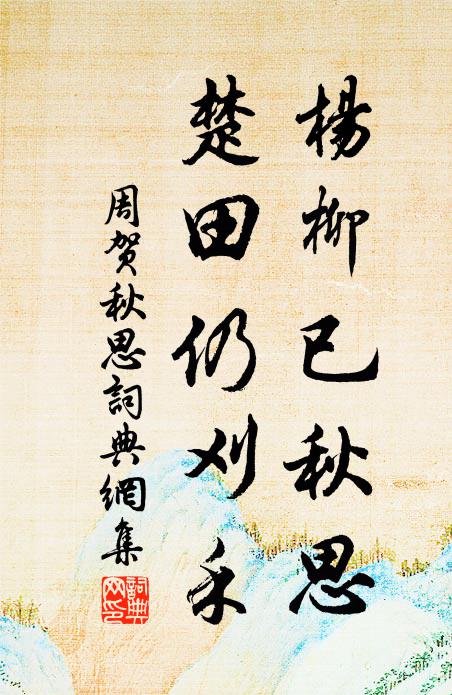 楊柳已秋思
楚田仍刈禾
周贺秋思詞典網集
詞典
网印